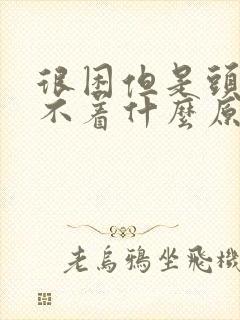 很困但是頭
不着什麼原
老烏鴉坐飛機